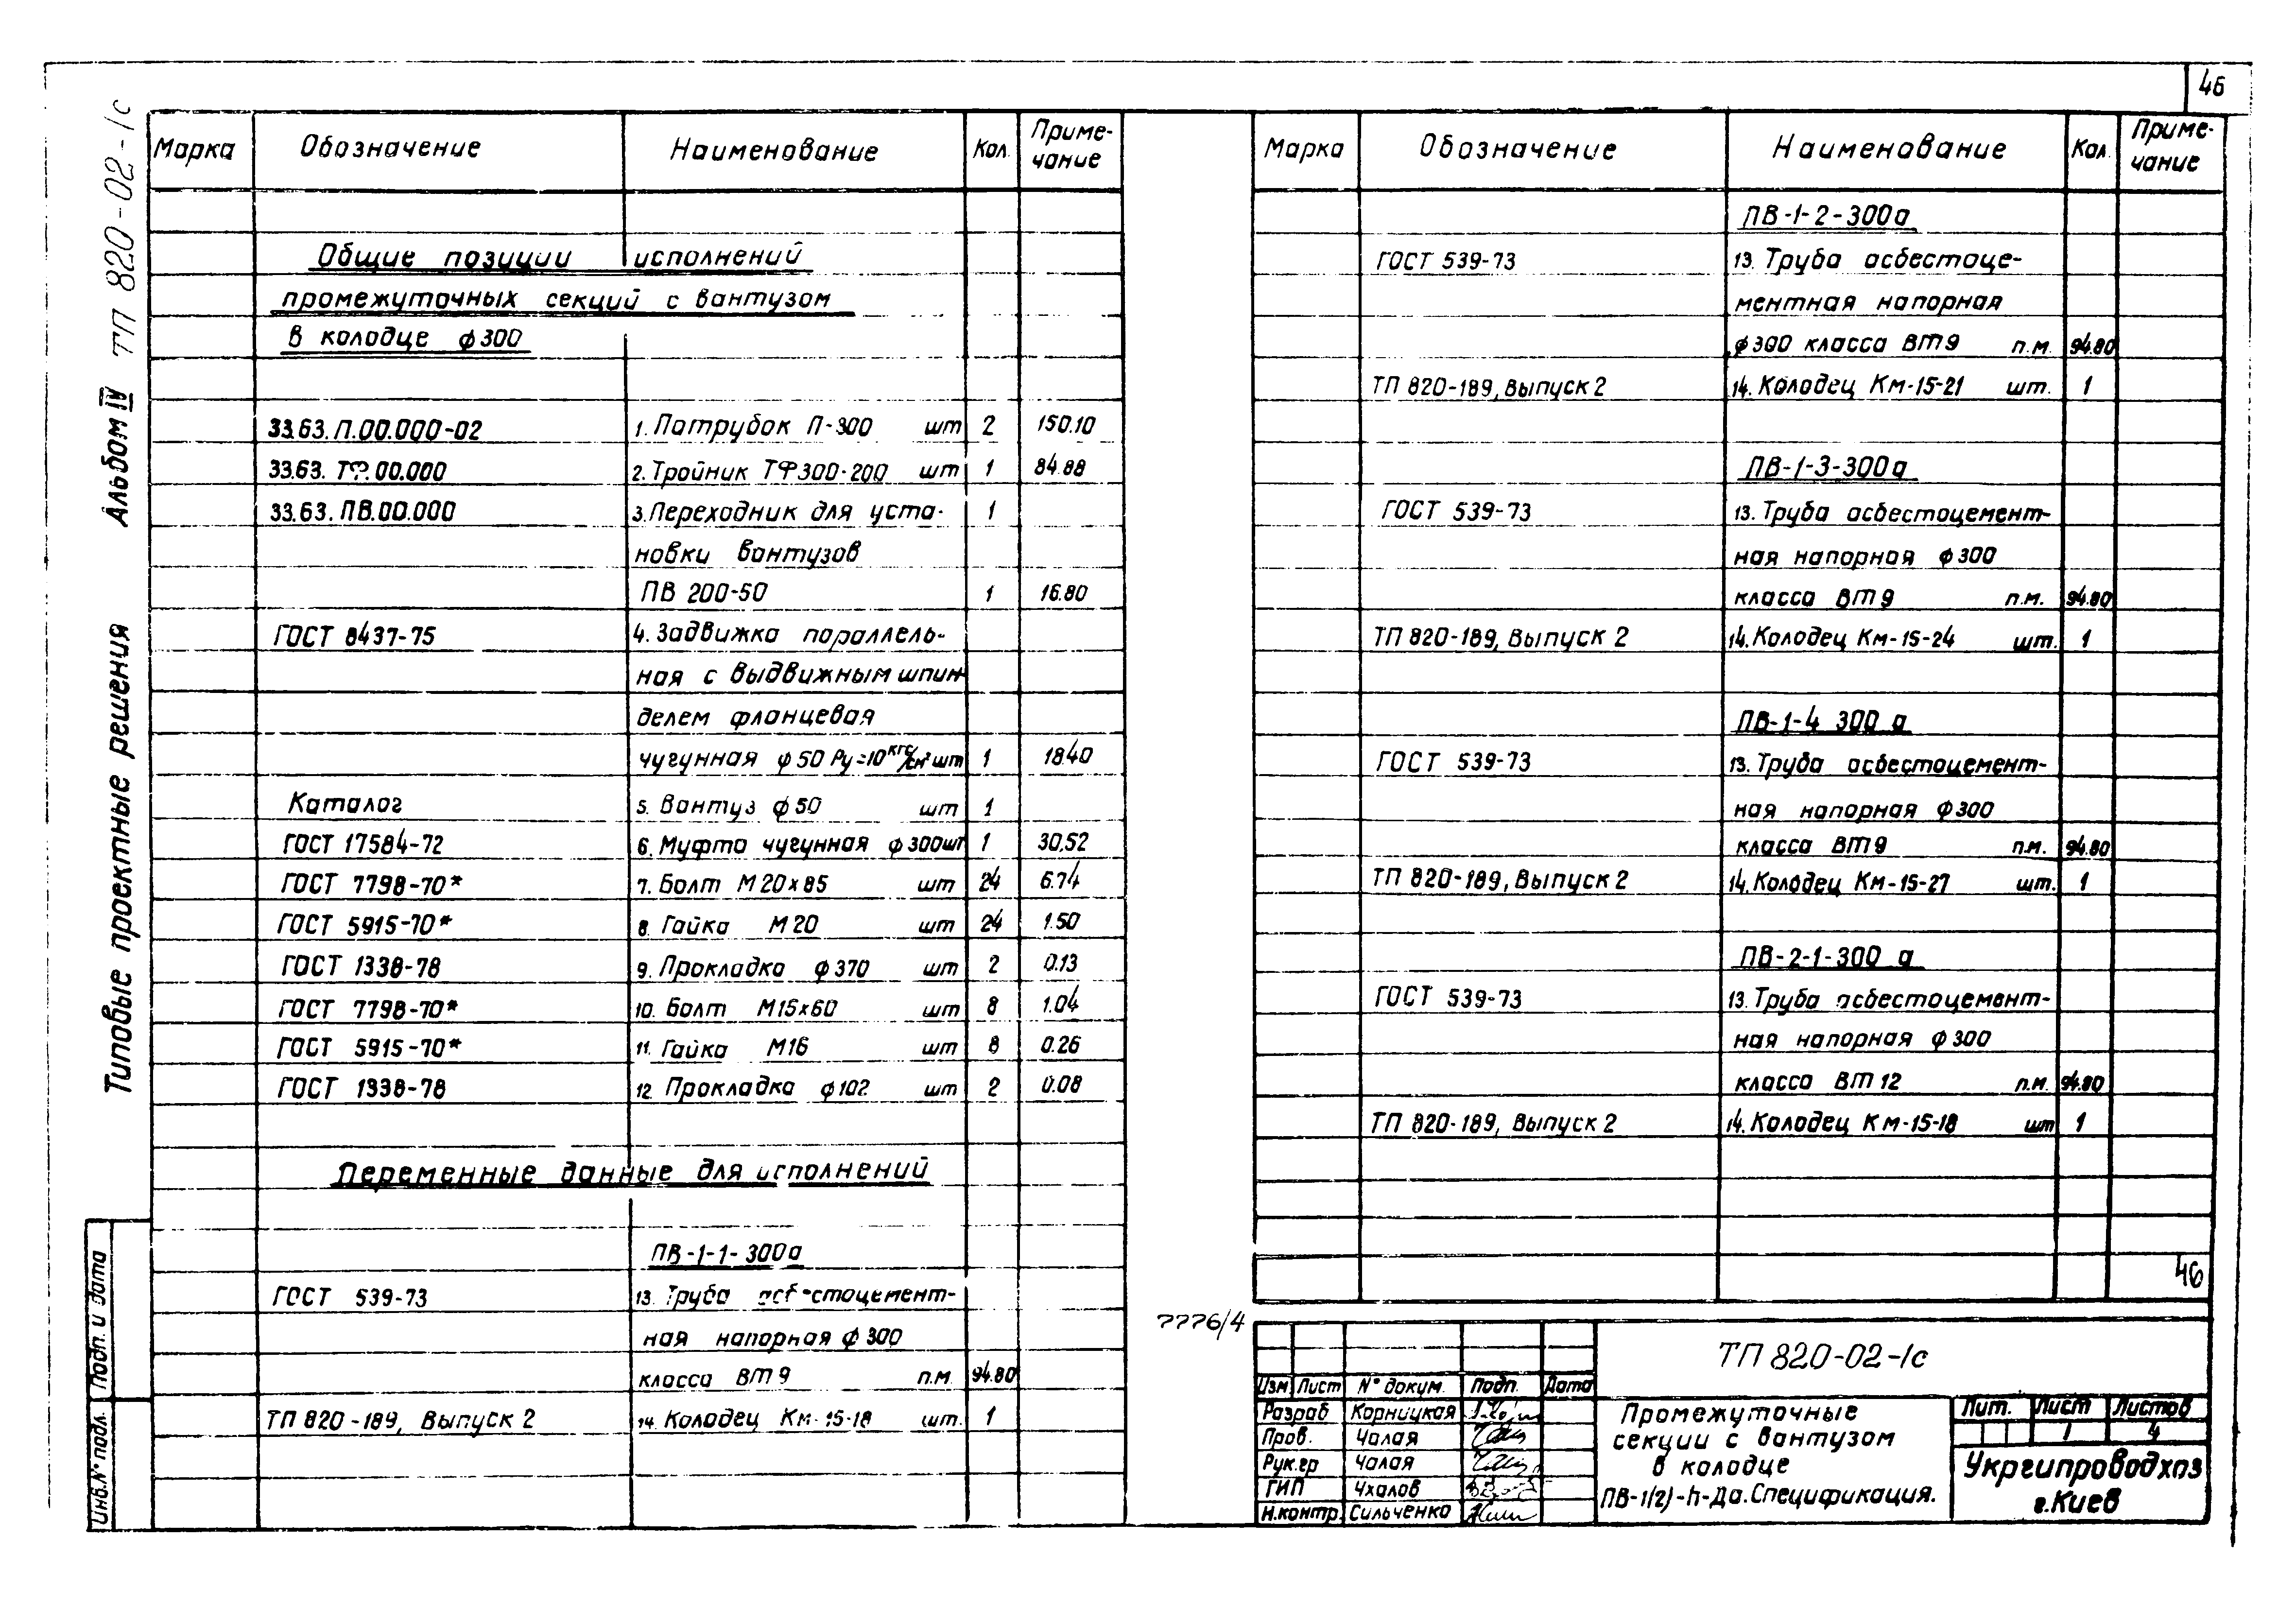 46
Типовые проектные решения Альбом IV ТП 820-02-1с
Марка Обозначение Наименование Кол. Приме-
чание
Общие позиции исполнений
промежуточных секций с вантузом
в колодце ф300
33.63.П.00.000-02 1. Патрубок П-300 шт 2 150.10
33.63. ТФ.00.000 2. Тройник ТФ300-200 шт 1 84.88
33.63. ПВ.00.000 3. Переходник для уста- 1
новки вантузов
ПВ 200-50 1 16.80
ГОСТ 8437-75 4. Задвижка параллель-
ная с выдвижным шпин-
делем фланцевая
чугунная ф50 Ру=10 кгс/см² шт 1 18.40
Каталог 5. Вантуз ф50 шт 1
ГОСТ 17584-72 6. Муфта чугунная ф300 шт 1 30,52
ГОСТ 7798-70* 7. Болт М20х85 шт 24 6.74
ГОСТ 5915-70* 8. Гайка М20 шт 24 1.50
ГОСТ 1338-78 9. Прокладка ф370 шт 2 0.13
ГОСТ 7798-70* 10. Болт М16х60 шт 8 1.04
ГОСТ 5915-70* 11. Гайка М16 шт 8 0.26
ГОСТ 1338-78 12. Прокладка ф102 шт 2 0.08
Переменные данные для исполнений
ПВ-1-1-300а
ГОСТ 539-73 13. Труба асбестоцемент-
ная напорная ф300
класса ВТ9 п.м. 94.80
ТП 820-189, Выпуск 2 14. Колодец Км-15-18 шт. 1
Марка Обозначение Наименование Кол. Приме-
чание
ПВ-1-2-300а
ГОСТ 539-73 13. Труба асбестоце-
ментная напорная
ф300 класса ВТ9 п.м. 94.80
ТП 820-189, Выпуск 2 14. Колодец Км-15-21 шт. 1
ПВ-1-3-300а
ГОСТ 539-73 13. Труба асбестоцемент-
ная напорная ф300
класса ВТ9 п.м. 94.80
ТП 820-189, Выпуск 2 14. Колодец Км-15-24 шт. 1
ПВ-1-4 300 а
ГОСТ 539-73 13. Труба асбестоцемент-
ная напорная ф300
класса ВТ9 п.м. 94.80
ТП 820-189, Выпуск 2 14. Колодец Км-15-27 шт. 1
ПВ-2-1-300 а
ГОСТ 539-73 13. Труба асбестоцемент-
ная напорная ф300
класса ВТ12 п.м. 94.80
ТП 820-189, Выпуск 2 14. Колодец Км-15-18 шт 1
46
7776/4
Инв.№ подл. Подп. и дата
ТП 820-02-1с
Изм Лист № докум. Подп. Дата
Разраб Корницкая
Пров. Чалая
Рук.гр Чалая
ГИП Чхалов
Н.контр. Сильченко
Промежуточные
секции с вантузом
в колодце
ПВ-1(2)-п-Да. Спецификация.
Лит. Лист Листов
1 4
Укргипроводхоз
г. Киев